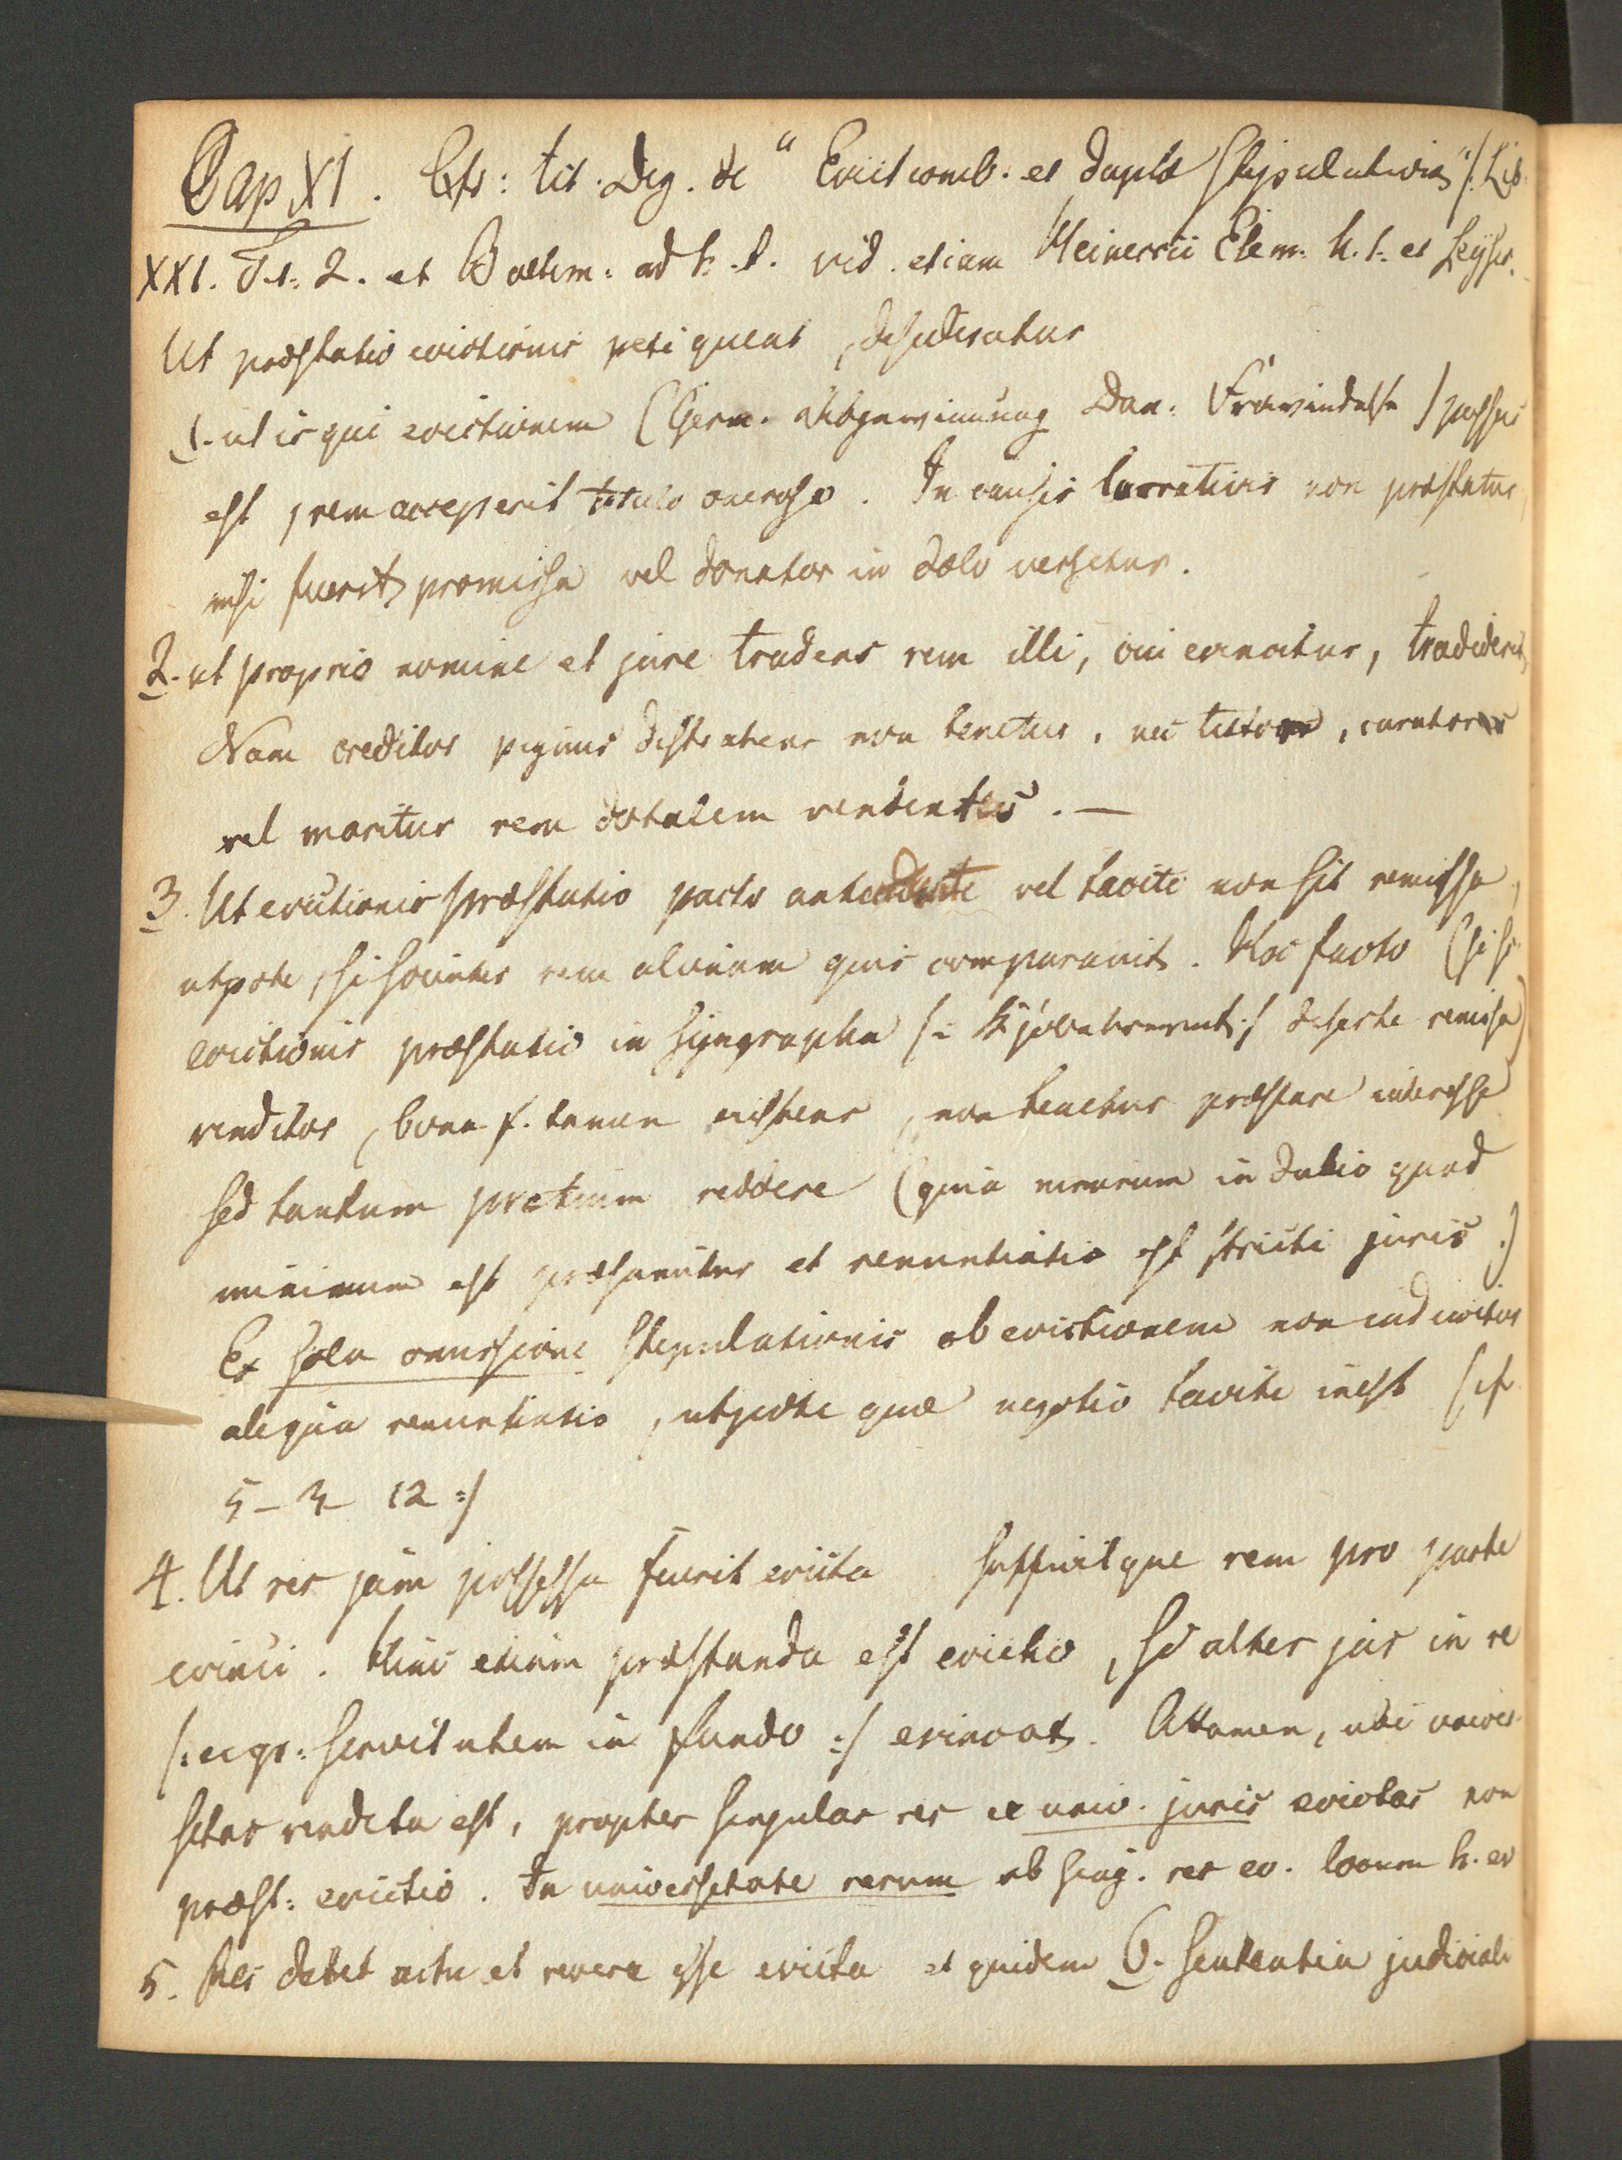 Cap XI. Cfr: tit. Dig. de "Evictionib. et duplæ stipulatione" /: Lib:
XXI. Tit: 2. et Boehm: ad h. t. vid. etiam Heineccii Elem: h. t: et Leyser.
Ut præstatio evictionis peti queat, desideratur
1. ut is qui evictionem (Germ. Abgewinnung Dan: Fravindelse) passus
est, rem acceperit titulo oneroso. In causis lucrativis non præstatur,
nisi fuerit promissa vel donator in dolo versetur.
2. ut proprio nomine et jure tradens rem illi, cui evincitur, tradiderit,
Nam creditor pignus distrahens non tenetur, nec tutor, curator
vel maritus rem dotalem vendentes. —
3. Ut evictionis præstatio pacto antecedente vel tacite non sit remissa,
utpote, si scienter rem alienam quis comparavit. Hoc facto (si sc.
evictionis præstatio in syngrapha /: Kjøbebrevet :/ diserte remissa)
venditor, bona f. tamen existens, non tenetur præstare interesse
sed tantum pretium reddere (quia nimirum in dubio quod
minimum est præsumitur et renuntiatio est stricti juris.)
Ex sola omissione stipulationis ob evictionem non inducitur
aliqua renuntiatio, utpote quæ negotio tacite inest /: cf
5 – 3 – 12 :/
4. Ut res jam possessa fuerit evicta sufficitque rem pro parte
evinci. Hinc etiam præstanda est evictio, si alter jus in re
/: ex gr: servitutem in fundo :/ evincat. Attamen, ubi univer-
sitas vendita est, propter singulas res ex univ. juris evictas non
præst: evictio. In universitate rerum ob sing. res ev. locum h. ev
5. Res debet actu et revera esse evicta et quidem 6. sententia judiciali